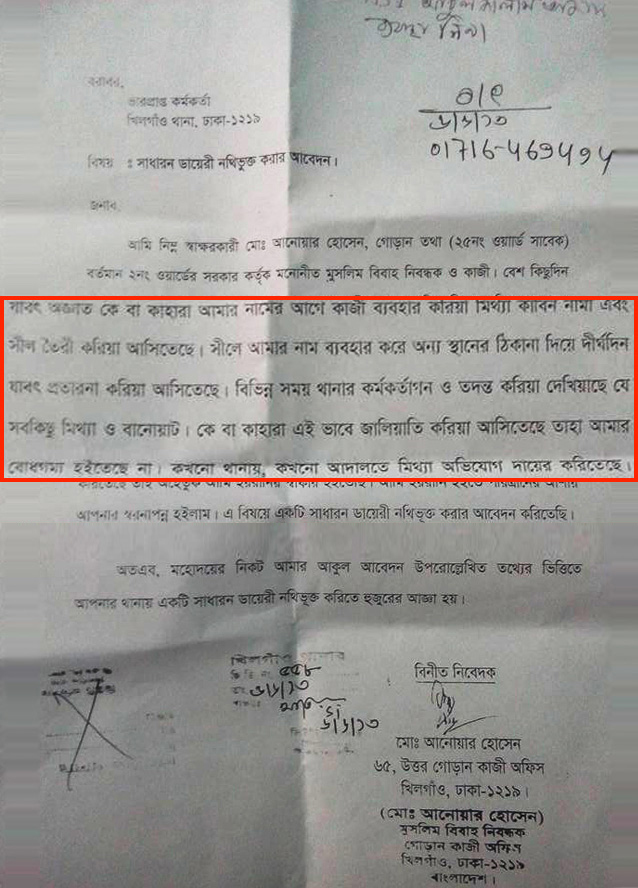 বরাবর,
ভারপ্রাপ্ত কর্মকর্তা
খিলগাঁও থানা, ঢাকা-১২১৯
০১৭১৬-৭৬৯৭৯৭
বিষয় : সাধারন ডায়েরী নথিভুক্ত করার আবেদন।
জনাব,
আমি নিম্ন স্বাক্ষরকারী মোঃ আনোয়ার হোসেন, গোড়ান তথা (২৫নং ওয়ার্ড সাবেক)
বর্তমান ২নং ওয়ার্ডের সরকার কর্তৃক মনোনীত মুসলিম বিবাহ নিবন্ধক ও কাজী। বেশ কিছুদিন
যাবৎ অজ্ঞাত কে বা কাহারা আমার নামের আগে কাজী ব্যবহার করিয়া মিথ্যা কাবিন নামা এবং
সীল তৈরী করিয়া আসিতেছে। সীলে আমার নাম ব্যবহার করে অন্য স্থানের ঠিকানা দিয়ে দীর্ঘদিন
যাবৎ প্রতারনা করিয়া আসিতেছে। বিভিন্ন সময় থানার কর্মকর্তাগন ও তদন্ত করিয়া দেখিয়াছে যে
সবকিছু মিথ্যা ও বানোয়াট। কে বা কাহারা এই ভাবে জালিয়াতি করিয়া আসিতেছে তাহা আমার
বোধগম্য হইতেছে না। কখনো থানায়, কখনো আদালতে মিথ্যা অভিযোগ দায়ের করিতেছে।
আপনার স্বরনাপন্ন হইলাম। এ বিষয়ে একটি সাধারন ডায়েরী নথিভুক্ত করার আবেদন করিতেছি।
অতএব, মহোদয়ের নিকট আমার আকুল আবেদন উপরোল্লেখিত তথ্যের ভিত্তিতে
আপনার থানায় একটি সাধারন ডায়েরী নথিভুক্ত করিতে হুজুরের আজ্ঞা হয়।
খিলগাঁও থানার
বিনীত নিবেদক
মোঃ আনোয়ার হোসেন
৬৫, উত্তর গোড়ান কাজী অফিস
খিলগাঁও, ঢাকা-১২১৯।
(মোঃ আনোয়ার হোসেন)
মুসলিম বিবাহ নিবন্ধক
গোড়ান কাজী অফিস
খিলগাঁও, ঢাকা-১২১৯
বাংলাদেশ।